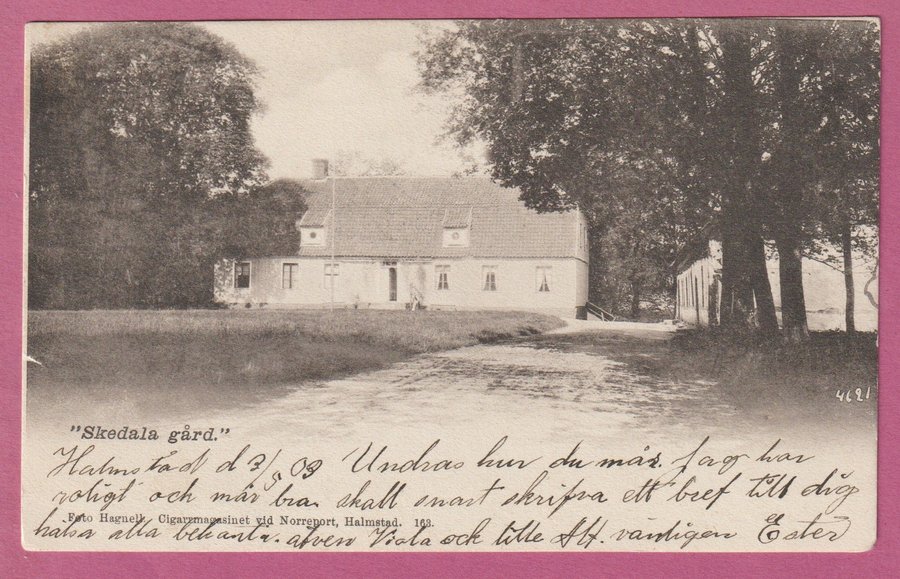 4621
"Skedala gård."
Halmstad d 7/5 03 Undras hur du mår. jag har
roligt och mår bra. skall snart skrifva ett bref till dig
Foto Hagnell. Cigarrmagasinet vid Norreport, Halmstad. 163.
hälsa alla bekanta. äfven Viola ock lille Alf. vändigen Ester